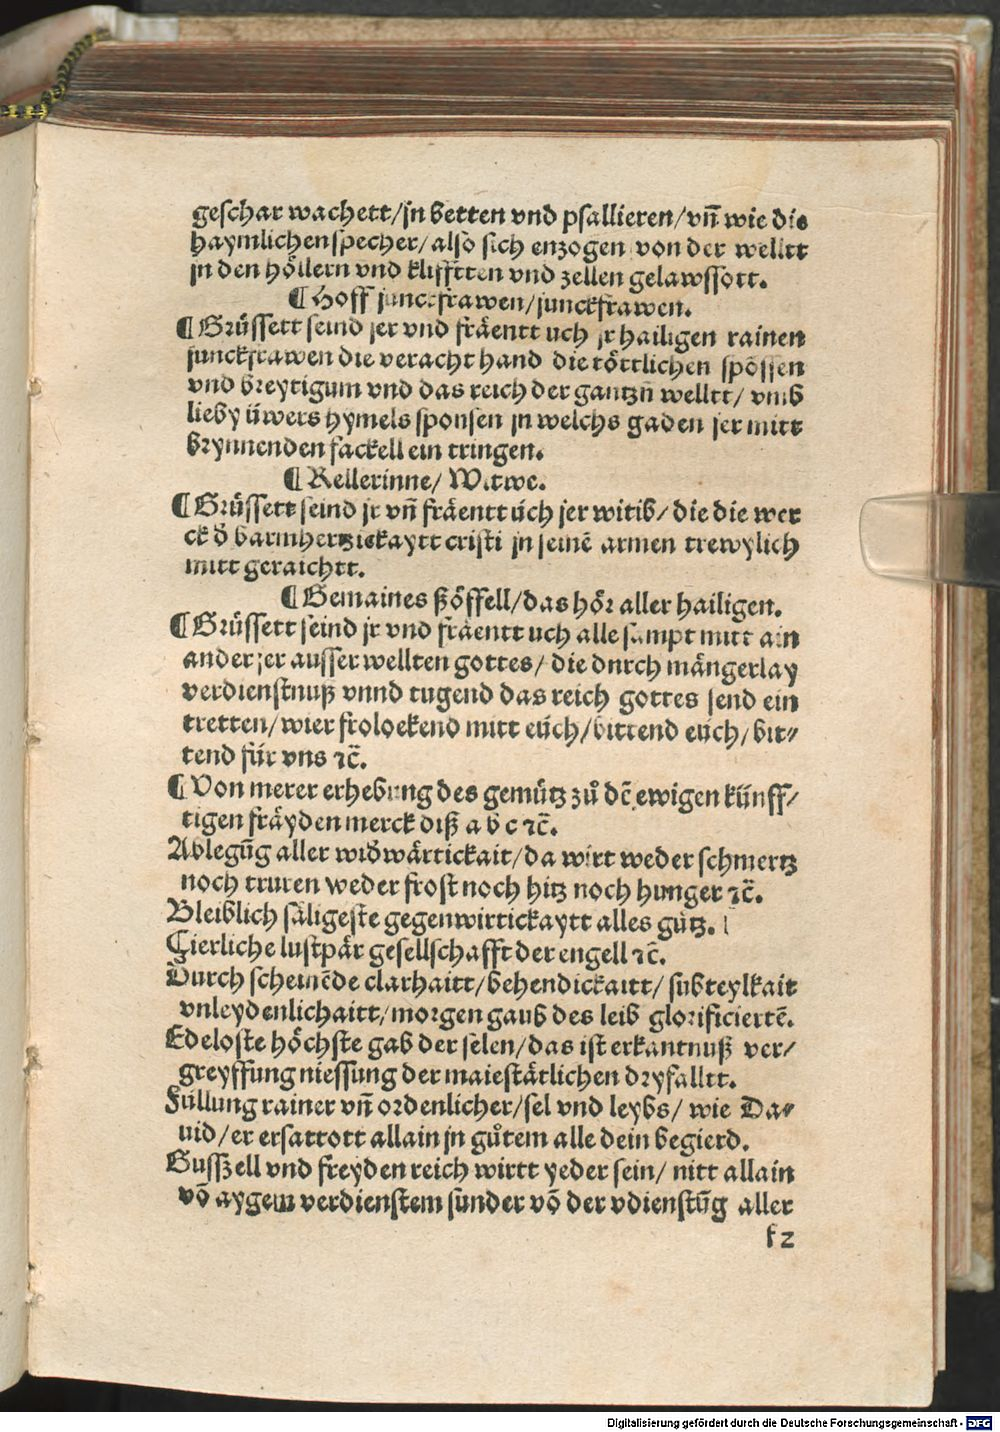 geschar wachett/jn betten vnd psallieren/vn̄ wie die
haymlichen specher/ also sich enzogen von der welltt
jn den höllern vnd klifftten vnd zellen gelawssott.
¶ Hoff junckfrawen/junckfrawen.
¶ Grüssett seind jer vnd fräentt uch jr hailigen rainen
junckfrawen die veracht hand die töttlichen spössen
vnd breytigum vnd das reich der gantzn̄ welltt/ vmb
lieby üwers hymels sponsen jn welchs gaden jer mitt
brynnenden fackell ein tringen.
¶ Kellerinne/ Witwe.
¶ Grüssett seind jr vn̄ fräentt üch jer witib/ die die wer
ck d̄ barmhertzickaytt cristi jn seinē armen trewylich
mitt geraichtt.
¶ Gemaines ßöffell/das hör aller hailigen.
¶ Grüssett seind jr vnd fräentt uch alle sampt mitt ain
ander jer ausser wellten gottes/ die dnrch mängerlay
verdienstnuß vnnd tugend das reich gottes send ein
tretten/ wier frolockend mitt eüch/bittend eüch/ bit⸗
tend für vns ꝛc̄.
¶ Von merer erhebung des gemütz zů dē ewigen künff/
tigen fräyden merck diß a b c ꝛc̄.
Ablegūg aller wid̄wärtickait/da wirt weder schmertz
noch truren weder frost noch hitz noch hunger ꝛc̄.
Bleiblich säligeste gegenwirtickaytt alles gůtz.
Çierliche lustpär gesellschafft der engell ꝛc̄.
Durch scheinēde clarhaitt/behendickaitt/ subteylkait
vnleydenlichaitt/morgen gaub des leib glorificiertē.
Edeloste höchste gab der selen/das ist erkantnuß ver/
greyffung niessung der maiestätlichen dryfalltt.
Füllung rainer vn̄ ordenlicher/sel vnd leybs/ wie Da⸗
uid/er ersattott allain jn gůtem alle dein begierd.
Gussz ell vnd freyden reich wirtt yeder sein/ nitt allain
vō aygem verdienstem sunder vō der vdienstūg aller
f2
Digitalisierung gefördert durch die Deutsche Forschungsgemeinschaft - DFG